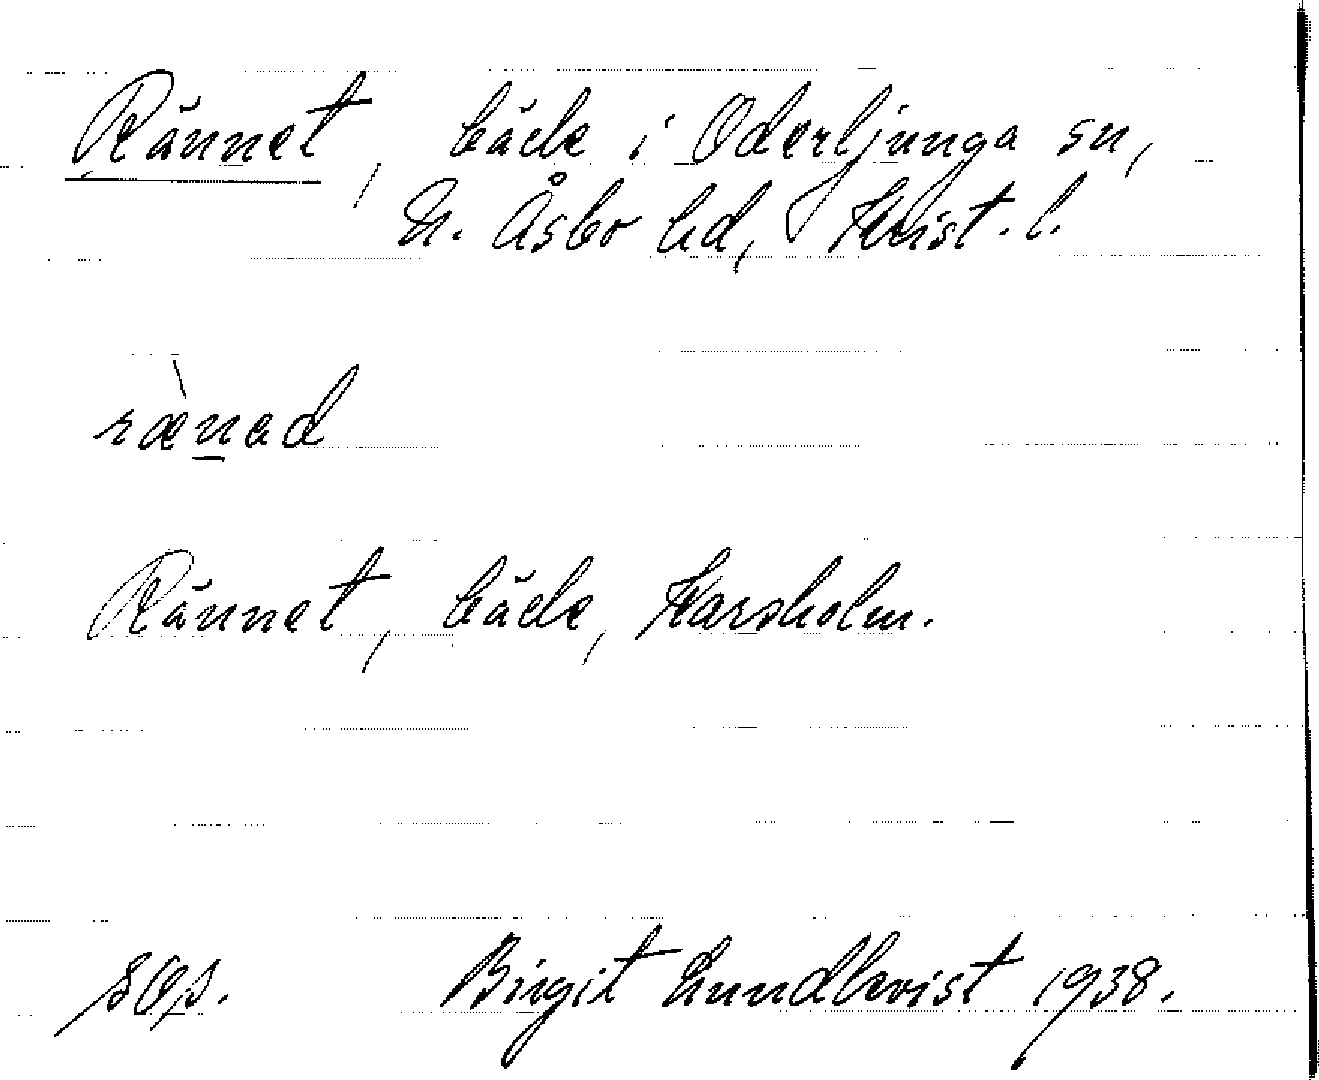 Rännet, bäck i Oderljunga sn,
N. Åsbo hd, Krist. l.
rænad
Rännet, bäck, Karsholm.
Birgit Lundkvist 1938.